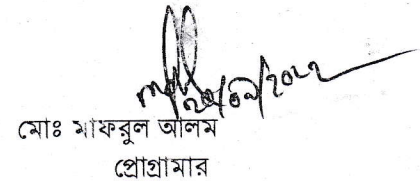 মোঃ মাফরুল আলম
প্রোগ্রামার